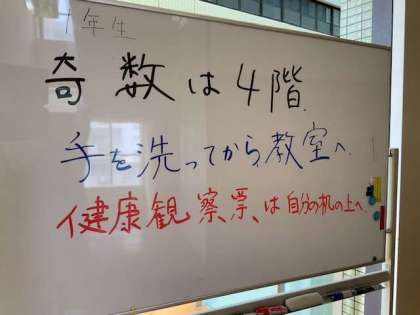 1年生
奇数は4階.
手を洗ってから教室へ.
健康観察票は自分の机の上へ.